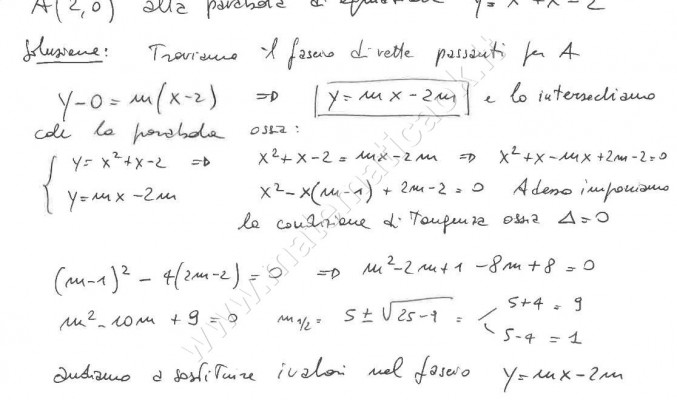 A(2,0) alla parabola di equazione y = x² + x - 2
Soluzione: Troviamo il fascio di rette passanti per A
y-0 = m(x-2) => y = mx - 2m e lo intersechiamo
con la parabola ossia:
{ y = x²+x-2 => x²+x-2 = mx-2m => x²+x-mx+2m-2=0
y = mx-2m x²-x(m-1)+2m-2=0 Adesso imponiamo
la condizione di tangenza ossia Δ=0
(m-1)² - 4(2m-2) = 0 => m²-2m+1-8m+8=0
m²-10m+9=0 m1/2 = 5±√25-9 = < 5+4=9
5-4=1
andiamo a sostituire i valori nel fascio y = mx-2m
www.matematicaok.it